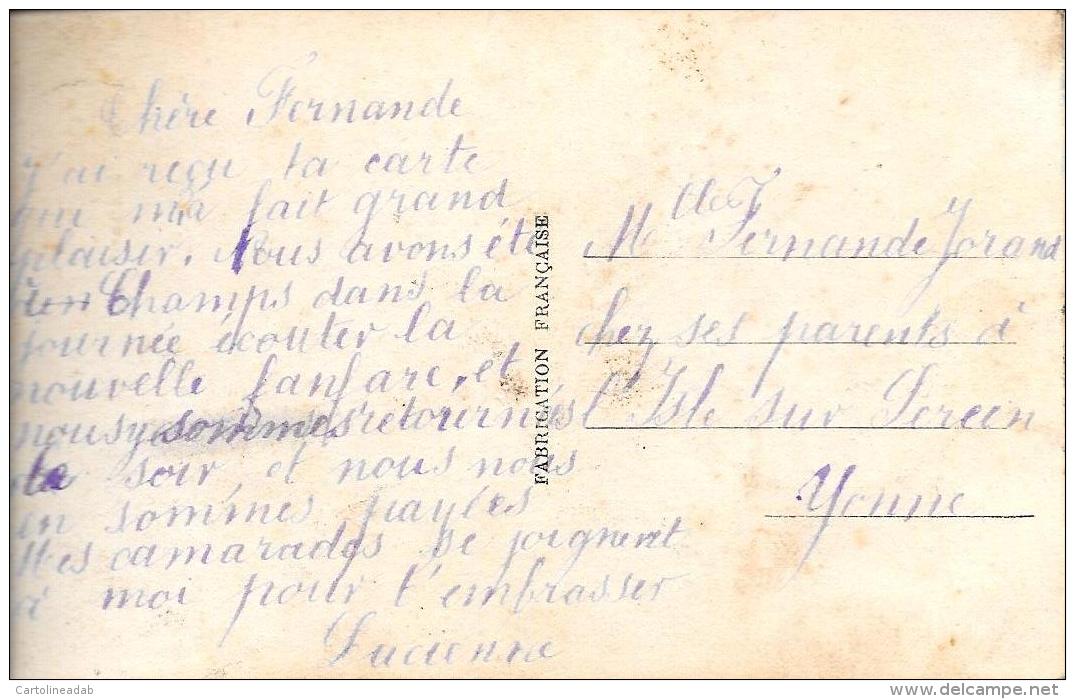 Chère Fernande
J'ai reçu ta carte
qui m'a fait grand
plaisir. Nous avons été
Champs dans la
journée écouter la
nouvelle fanfare, et
nous y sommes retournées
le soir, et nous nous
en sommes payées
Mes camarades se joignent
à moi pour t'embrasser
Lucienne
FABRICATION FRANÇAISE
Mlle Fernande Jorand
chez ses parents à
l'Isle sur Serein
Yonne
Cartolineadab
www.delcampe.net